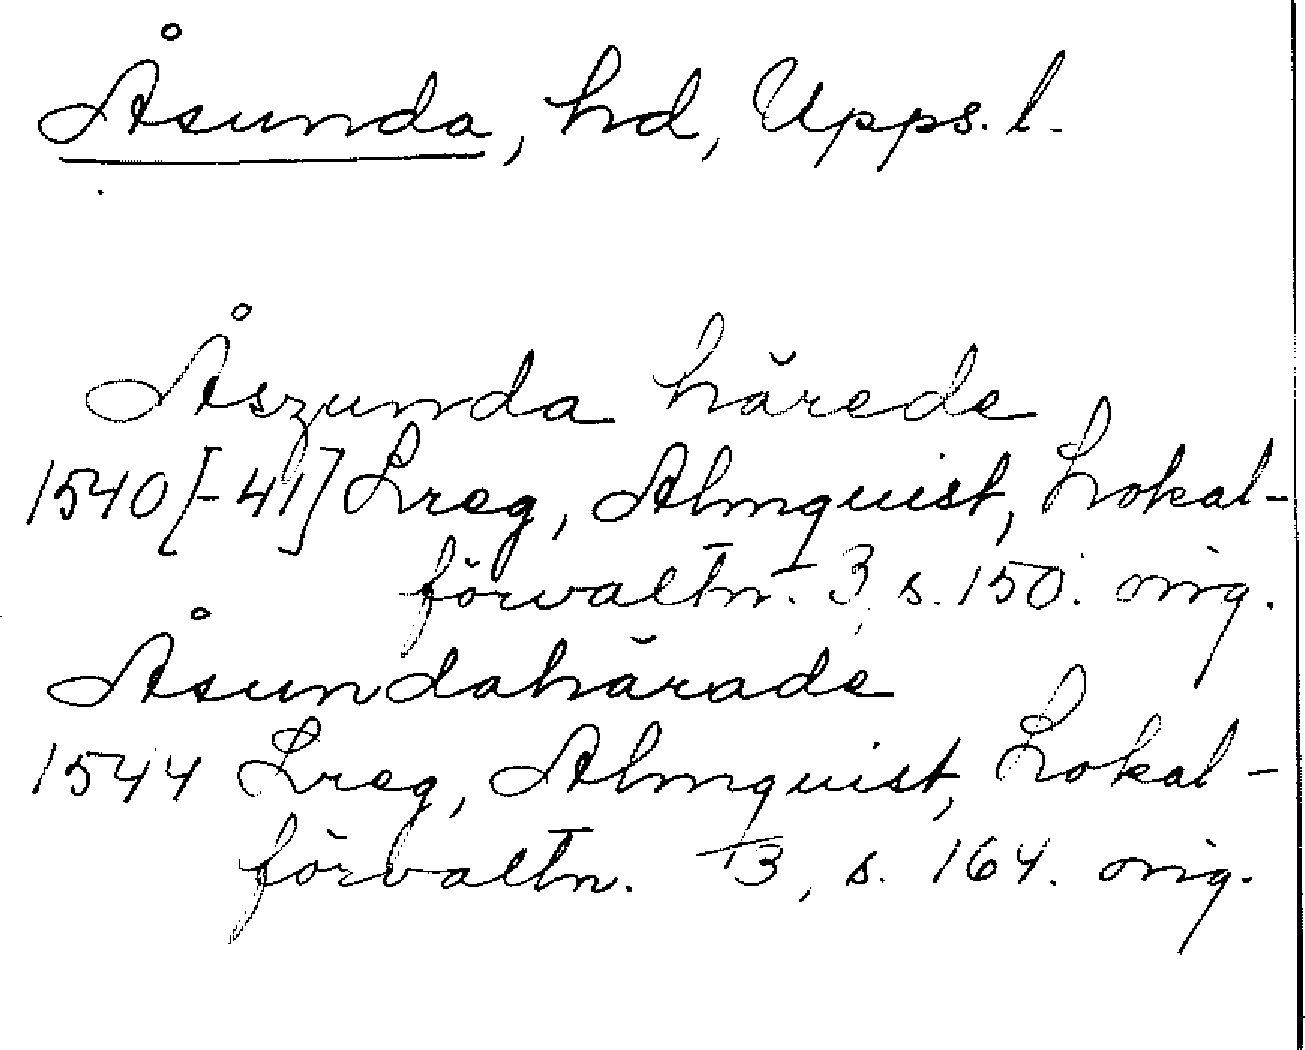 Åsunda, hd, Upps. l.
Åszunda härede
1540 [-41] Lreg, Almquist, Lokal-
förvaltn. 3, s. 150. orig.
Åsundahärade
1544 Lreg, Almquist, Lokal-
förvaltn. 3, s. 164. orig.